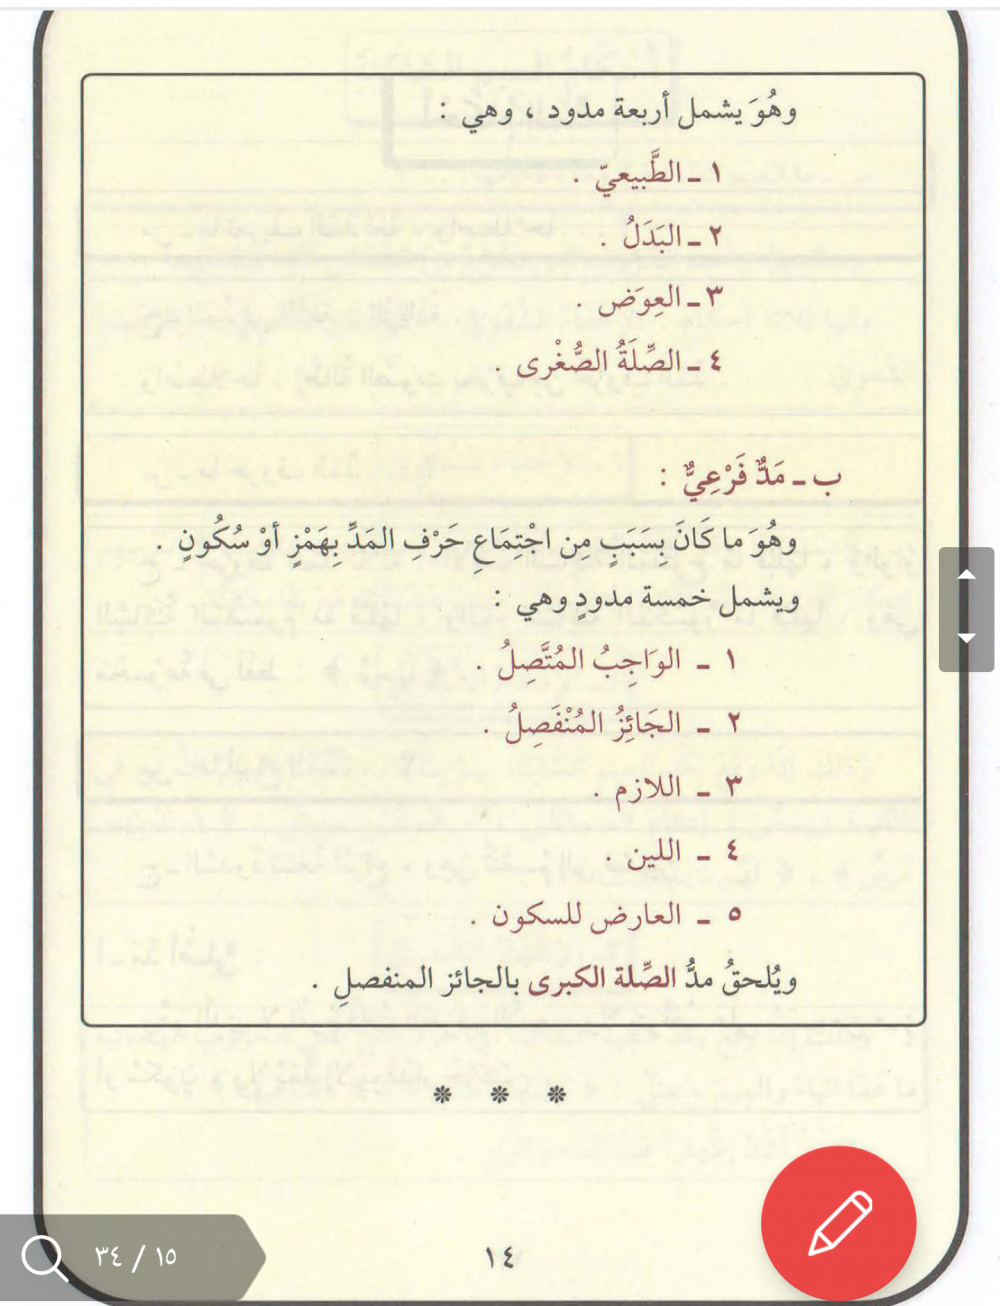 وهُوَ يشمل أربعة مدود ، وهي :
١ ـ الطَّبيعيّ .
٢ ـ البَدَلُ .
٣ ـ العِوَض .
٤ ـ الصِّلَةُ الصُّغْرى .
ب ـ مَدٌّ فَرْعِيٌّ :
وهُوَ ما كَانَ بِسَبَبٍ مِن اجْتِمَاعِ حَرْفِ المَدِّ بِهَمْزٍ أوْ سُكُونٍ .
ويشمل خمسة مدودٍ وهي :
١ ـ الوَاجِبُ المُتَّصِلُ .
٢ ـ الجَائِزُ المُنْفَصِلُ .
٣ ـ اللازم .
٤ ـ اللين .
٥ ـ العارض للسكون .
ويُلحقُ مدُّ الصِّلة الكبرى بالجائز المنفصلِ .
* * *
١٤
١٥ / ٣٤